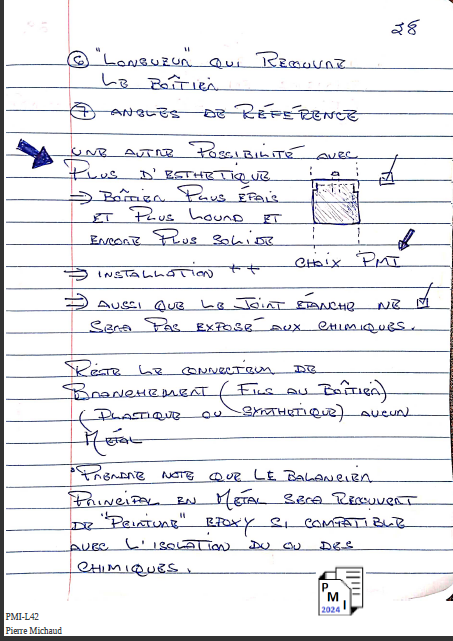 28
⑥ "LONGUEUR" QUI RECOUVRE
LE BOÎTIER
⑦ ANGLES DE RÉFÉRENCE
UNE AUTRE POSSIBILITÉ AVEC
PLUS D'ESTHÉTIQUE
⇒ BOÎTIER PLUS ÉPAIS
ET PLUS LOURD ET
ENCORE PLUS SOLIDE
CHOIX PMI
⇒ INSTALLATION ++
⇒ AUSSI QUE LE JOINT ÉTANCHE NE
SERA PAS EXPOSÉ AUX CHIMIQUES.
RESTE LE CONNECTEUR DE
BRANCHEMENT (FILS AU BOÎTIER)
(PLASTIQUE OU SYNTHÉTIQUE) AUCUN
MÉTAL
*PRENDRE NOTE QUE LE BALANCIER
PRINCIPAL EN MÉTAL SERA RECOUVERT
DE "PEINTURE" EPOXY SI COMPATIBLE
AVEC L'ISOLATION DU OU DES
CHIMIQUES.
P
M
2024 I
PMI-L42
Pierre Michaud